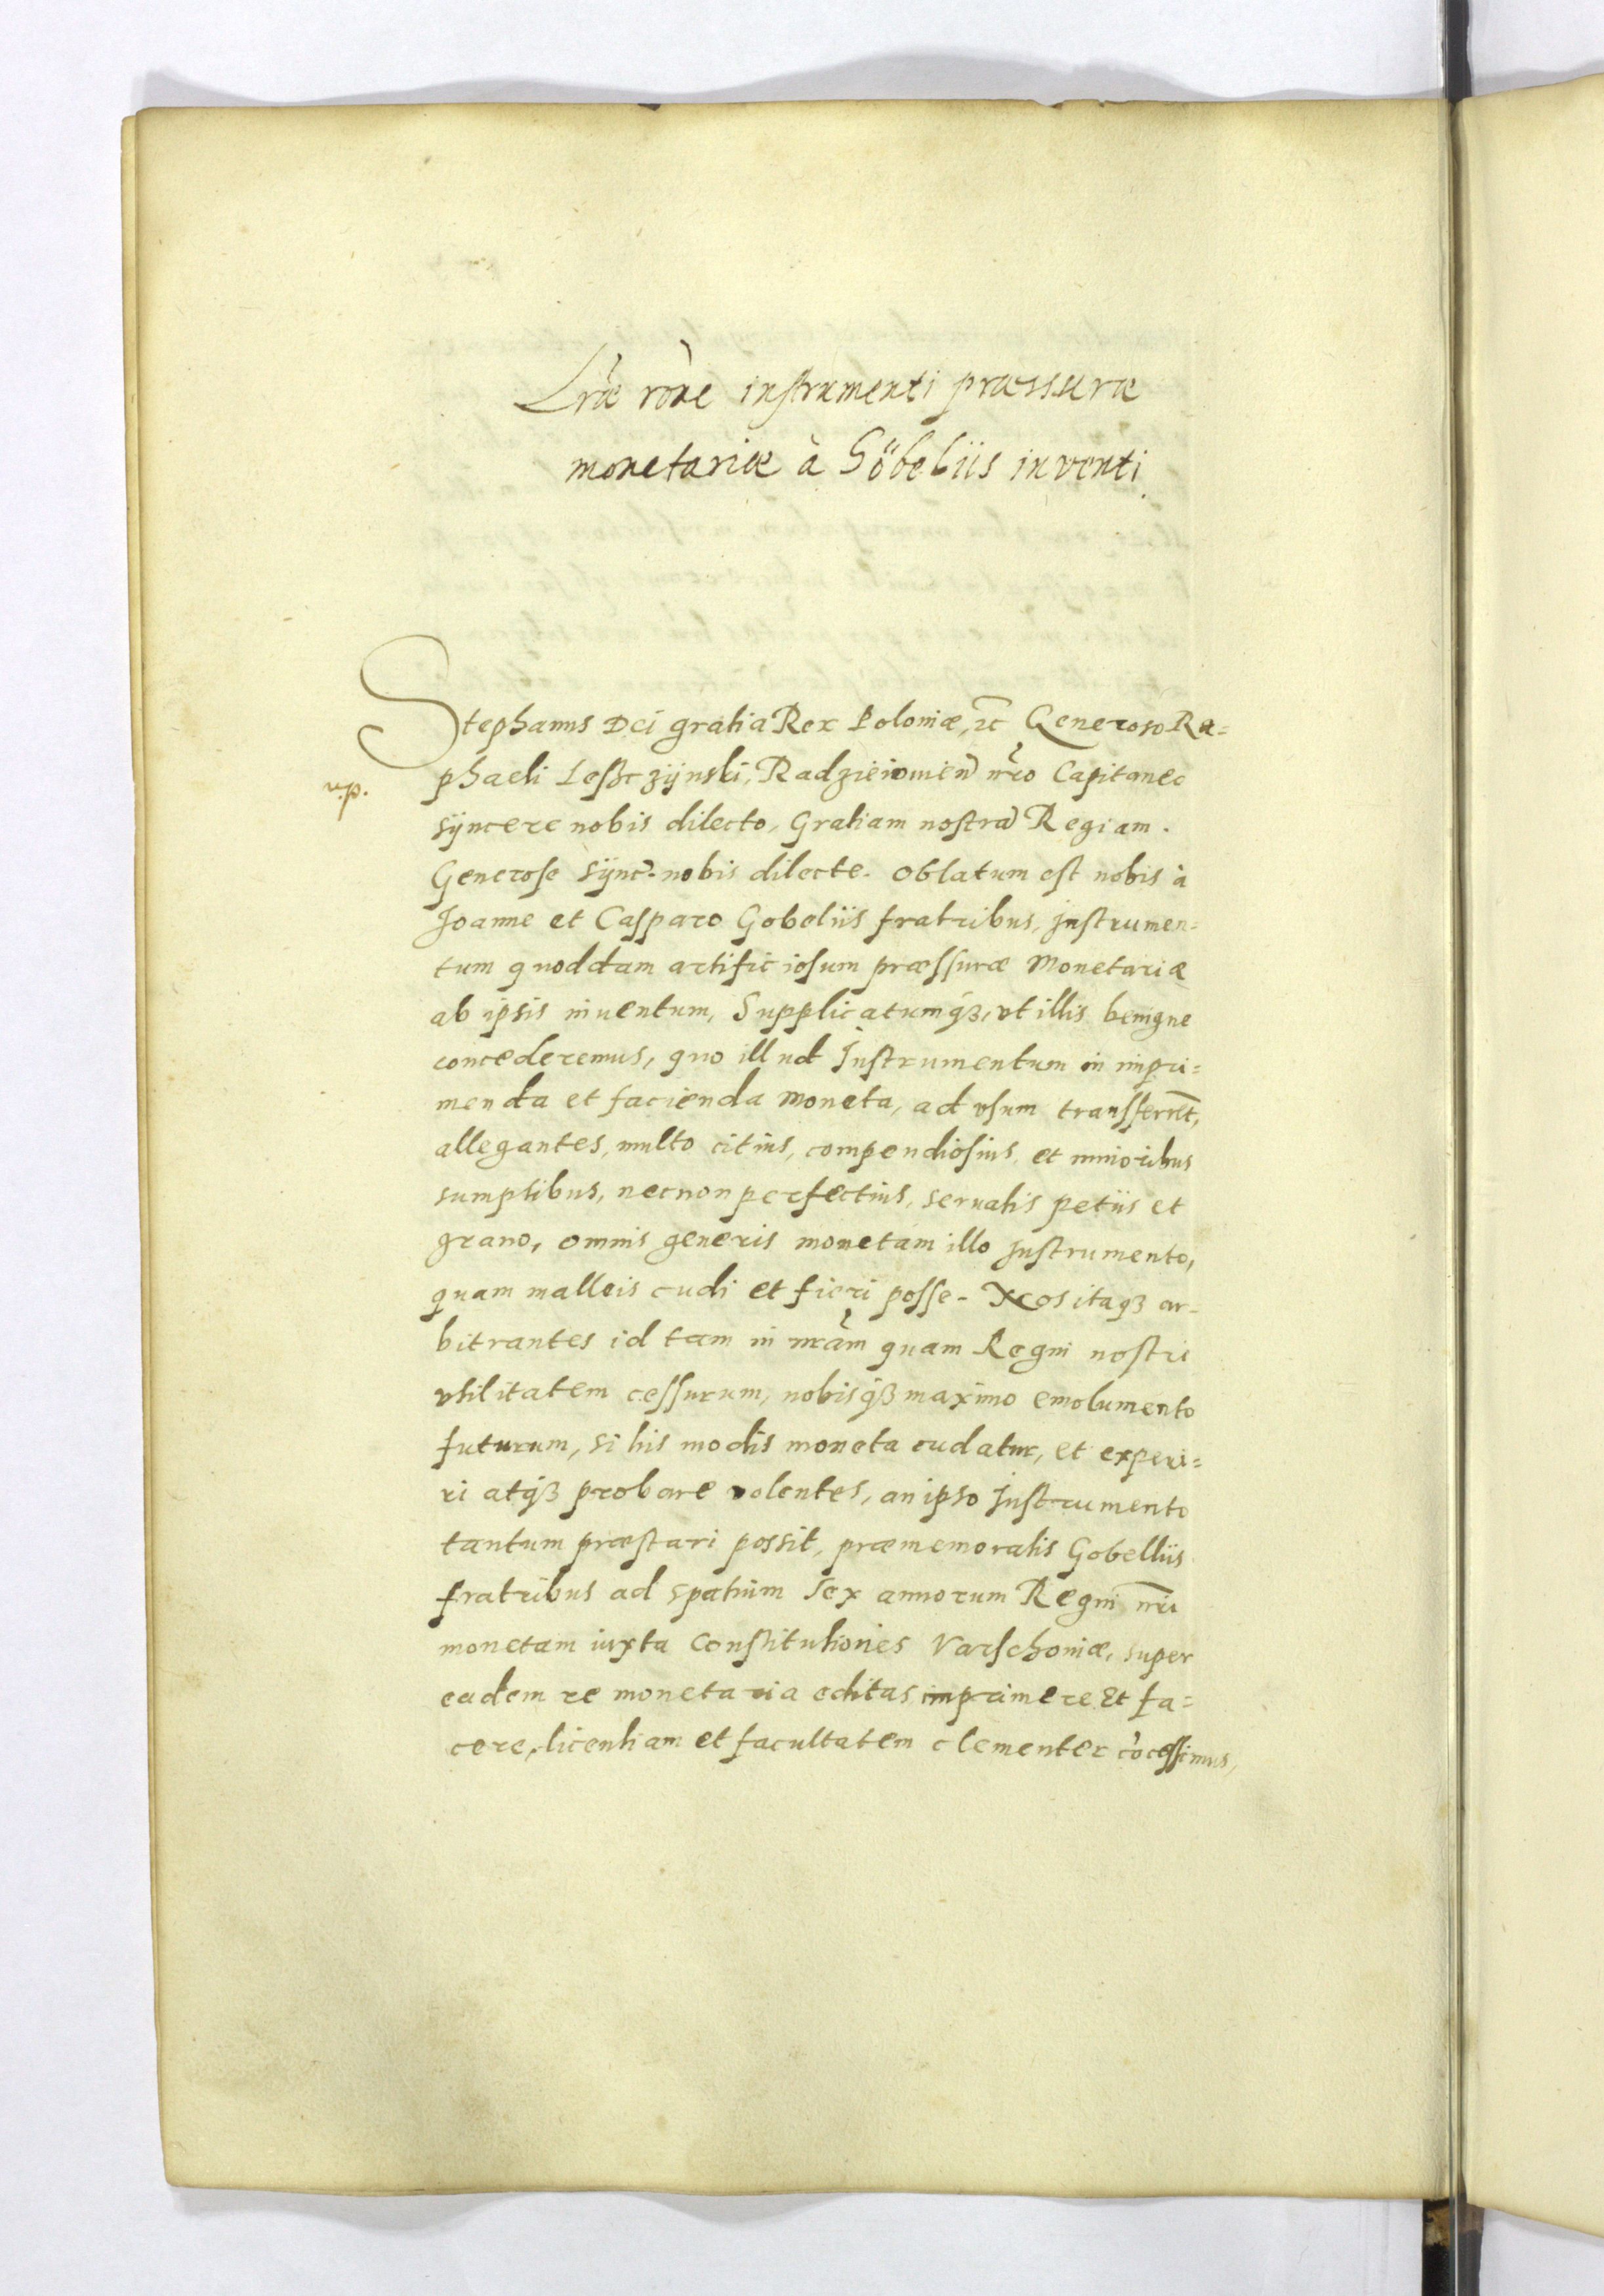 Lr̃æ rõne instrumenti præssuræ
monetariæ à Göbeliis inventi
Stephanus Dei gratia Rex Poloniæ, ꝛc Generoso Ra=
phaeli Leßczÿnski, Radzieiouieñ nr̃o Capitaneo
v.p.
sÿncere nobis dilecto, Gratiam nostrã Regiam.
Generose sÿnc̃. nobis dilecte. Oblatum est nobis à
Joanne et Casparo Gobeliis fratribus, Jnstrumen=
tum quoddam artificiosum præssuræ Monetariæ
ab ipsis inuentum, Supplicatumqꝫ, vt illis benigne
concederemus, quo illud Jnstrumentum in impri=
menda et facienda moneta, ad vsum transferrẽt,
allegantes, multo citius, compendiosius, et minoribus
sumptibus, necnon perfectius, seruatis petiis et
grano, omnis generis monetam illo Jnstrumento,
quam malleis cudi et fieri posse. Nos itaqꝫ ar-
bitrantes id tam in nr̃am quam Regni nostri
vtilitatem cessurum, nobisqꝫ maximo emolumento
futurum, si his modis moneta cudatur, et experi=
ri atqꝫ probare volentes, an ipso Jnstrumento
tantum præstari possit, præmemoratis Gobelliis
fratribus ad spatium sex annorum Regni nr̃i
monetam iuxta Constitutiones Varschoniæ, super
eadem re monetaria editas imprimere et fa=
cere, licentiam et facultatem clementer cõcessimus,